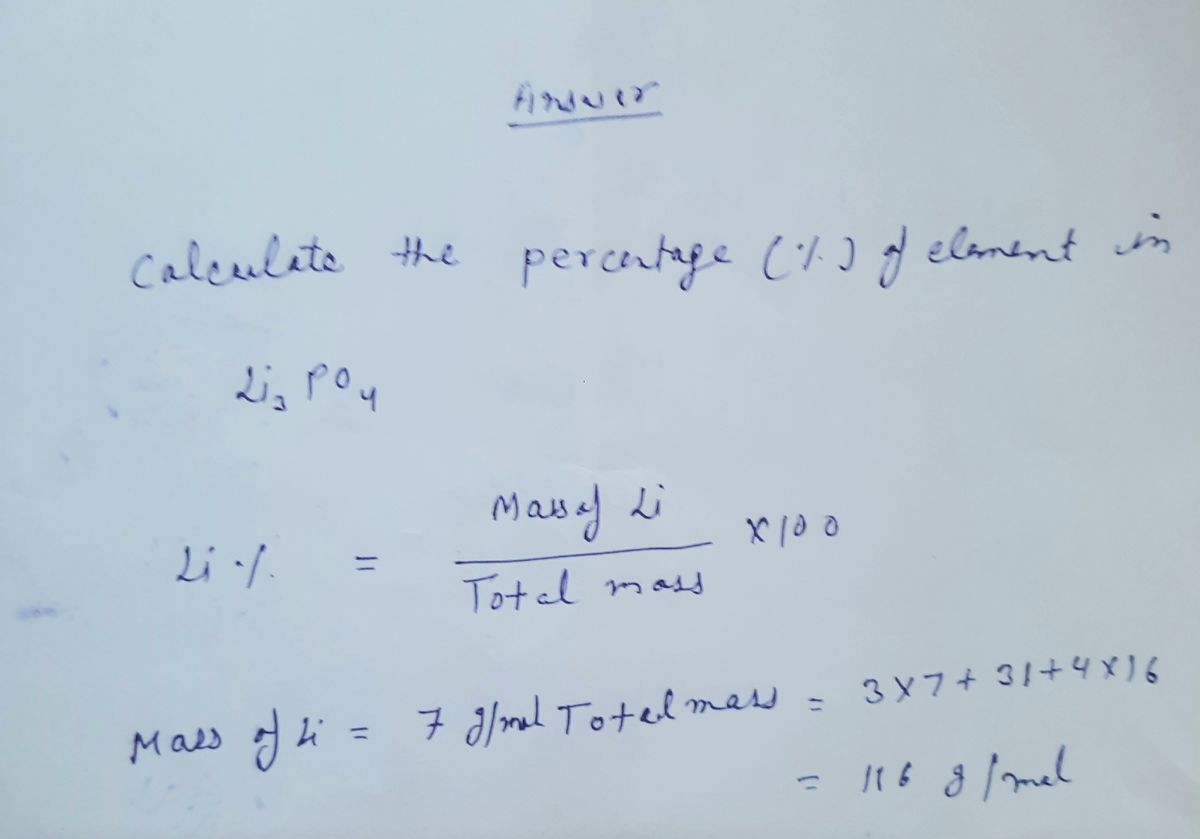 Answer
Calculate the percentage (%) of element in
Li₃ PO₄
Li % = Mass of Li / Total mass × 100
Mass of Li = 7 g/mol Total mass = 3×7+31+4×16
= 116 g/mol